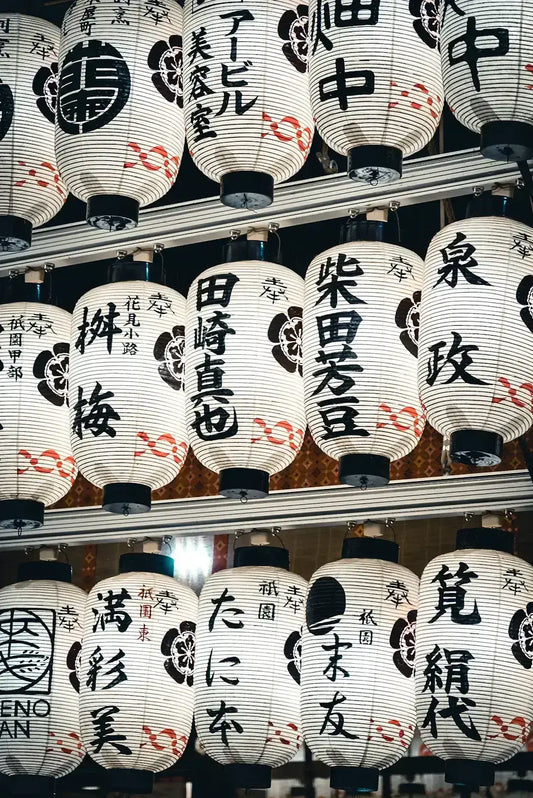 奉
奉
アービル
美容室
畑中
中
奉
祇園甲部
奉
花見小路
桝梅
奉
田崎真也
奉
柴田芳豆
奉
泉政
奉
ENO
AN
奉
祇園東
満彩美
奉
祇園
たに本
奉
祇園
末友
奉
筧絹代